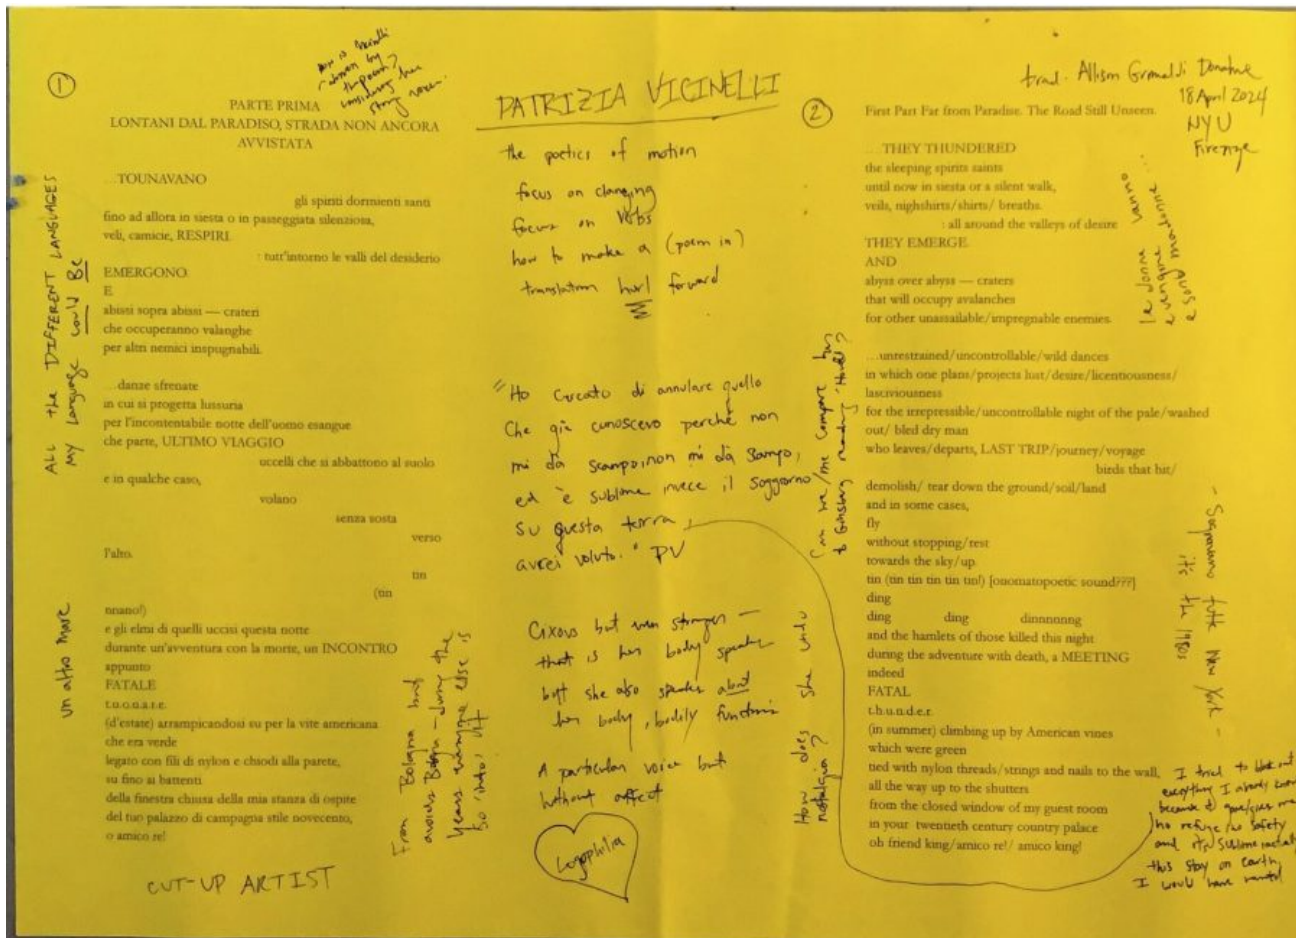 ①
PARTE PRIMA
LONTANI DAL PARADISO, STRADA NON ANCORA
AVVISTATA
…TOUNAVANO
gli spiriti dormienti santi
fino ad allora in siesta o in passeggiata silenziosa,
veli, camicie, RESPIRI.
: tutt'intorno le valli del desiderio
EMERGONO
E
abissi sopra abissi — crateri
che occuperanno valanghe
per altri nemici inspugnabili.
…danze sfrenate
in cui si progetta lussuria
per l'incontentabile notte dell'uomo esangue
che parte, ULTIMO VIAGGIO
uccelli che si abbattono al suolo
e in qualche caso,
volano
senza sosta
verso
l'alto.
tin
(tin
nnano!)
e gli elmi di quelli uccisi questa notte
durante un'avventura con la morte, un INCONTRO
appunto
FATALE
t.u.o.n.a.r.e.
(d'estate) arrampicandosi su per la vite americana
che era verde
legato con fili di nylon e chiodi alla parete,
su fino ai battenti
della finestra chiusa della mia stanza di ospite
del tuo palazzo di campagna stile novecento,
o amico re!
CUT-UP ARTIST
ALL the DIFFERENT LANGUAGES
MY Language could Be
un altro mare
considering her
strong voice.
from Bologna but
avoids
years everyone else is
so into it
PATRIZIA VICINELLI
the poetics of motion
focus on changing
focus on verbs
how to make a (poem in)
translation hurl forward
"Ho cercato di annulare quello
Che già conoscevo perché non
mi dà scampo, non mi dà scampo,
ed è sublime invece il soggiorno
su questa terra,
avrei voluto." PV
Cixous but even stronger —
that is her body speaks
but she also speaks about
her body, bodily functions
A particular voice but
without affect
Logophilia
Can we/me compare her
to Ginsberg reading 'Howl'?
How does she undo
nostalgia?
②
trad. Allison Grimaldi Donahue
18 April 2024
NYU
Firenze
First Part Far from Paradise. The Road Still Unseen.
…THEY THUNDERED
the sleeping spirits saints
until now in siesta or a silent walk,
veils, nighshirts/shirts/ breaths.
: all around the valleys of desire
THEY EMERGE
AND
abyss over abyss — craters
that will occupy avalanches
for other unassailable/impregnable enemies.
…unrestrained/uncontrollable/wild dances
in which one plans/projects lust/desire/licentiousness/
lasciviousness
for the irrepressible/uncontrollable night of the pale/washed
out/ bled dry man
who leaves/departs, LAST TRIP/journey/voyage
birds that hit/
demolish/ tear down the ground/soil/land
and in some cases,
fly
without stopping/rest
towards the sky/up.
tin (tin tin tin tin tin!) [onomatopoetic sound???]
ding
ding ding dinnnnnng
and the hamlets of those killed this night
during the adventure with death, a MEETING
indeed
FATAL
t.h.u.n.d.e.r.
(in summer) climbing up by American vines
which were green
tied with nylon threads/strings and nails to the wall,
all the way up to the shutters
from the closed window of my guest room
in your twentieth century country palace
oh friend king/amico re!/ amico king!
le donne vanno
e vengono
e sono madonne...
- Sognavamo tutte New York -
its the 1980s
I tried to blot out
everything I already knew
because it gave/gives me
no refuge/no safety
and it's sublime instead
this stay on earth,
I would have wanted